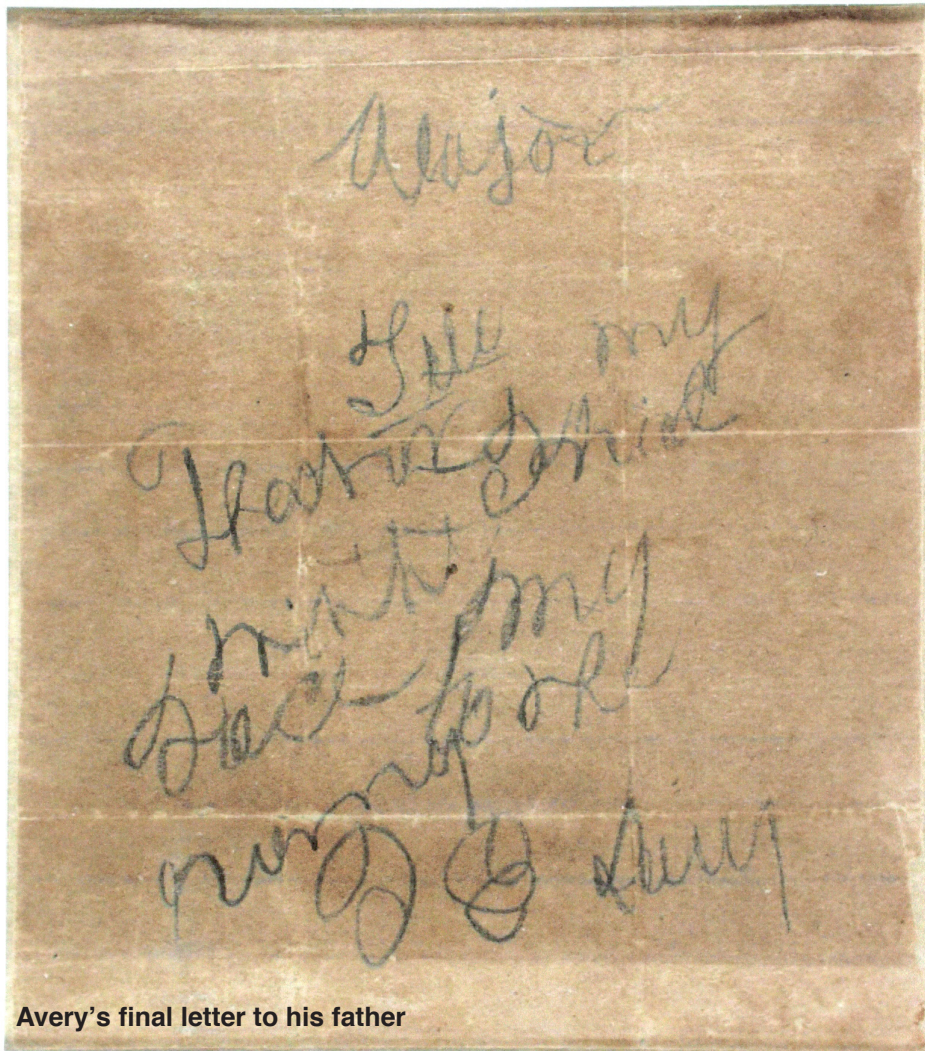 Major
Tell my
Father I died
with my
face to the
enemy
I E Avery
Avery’s final letter to his father